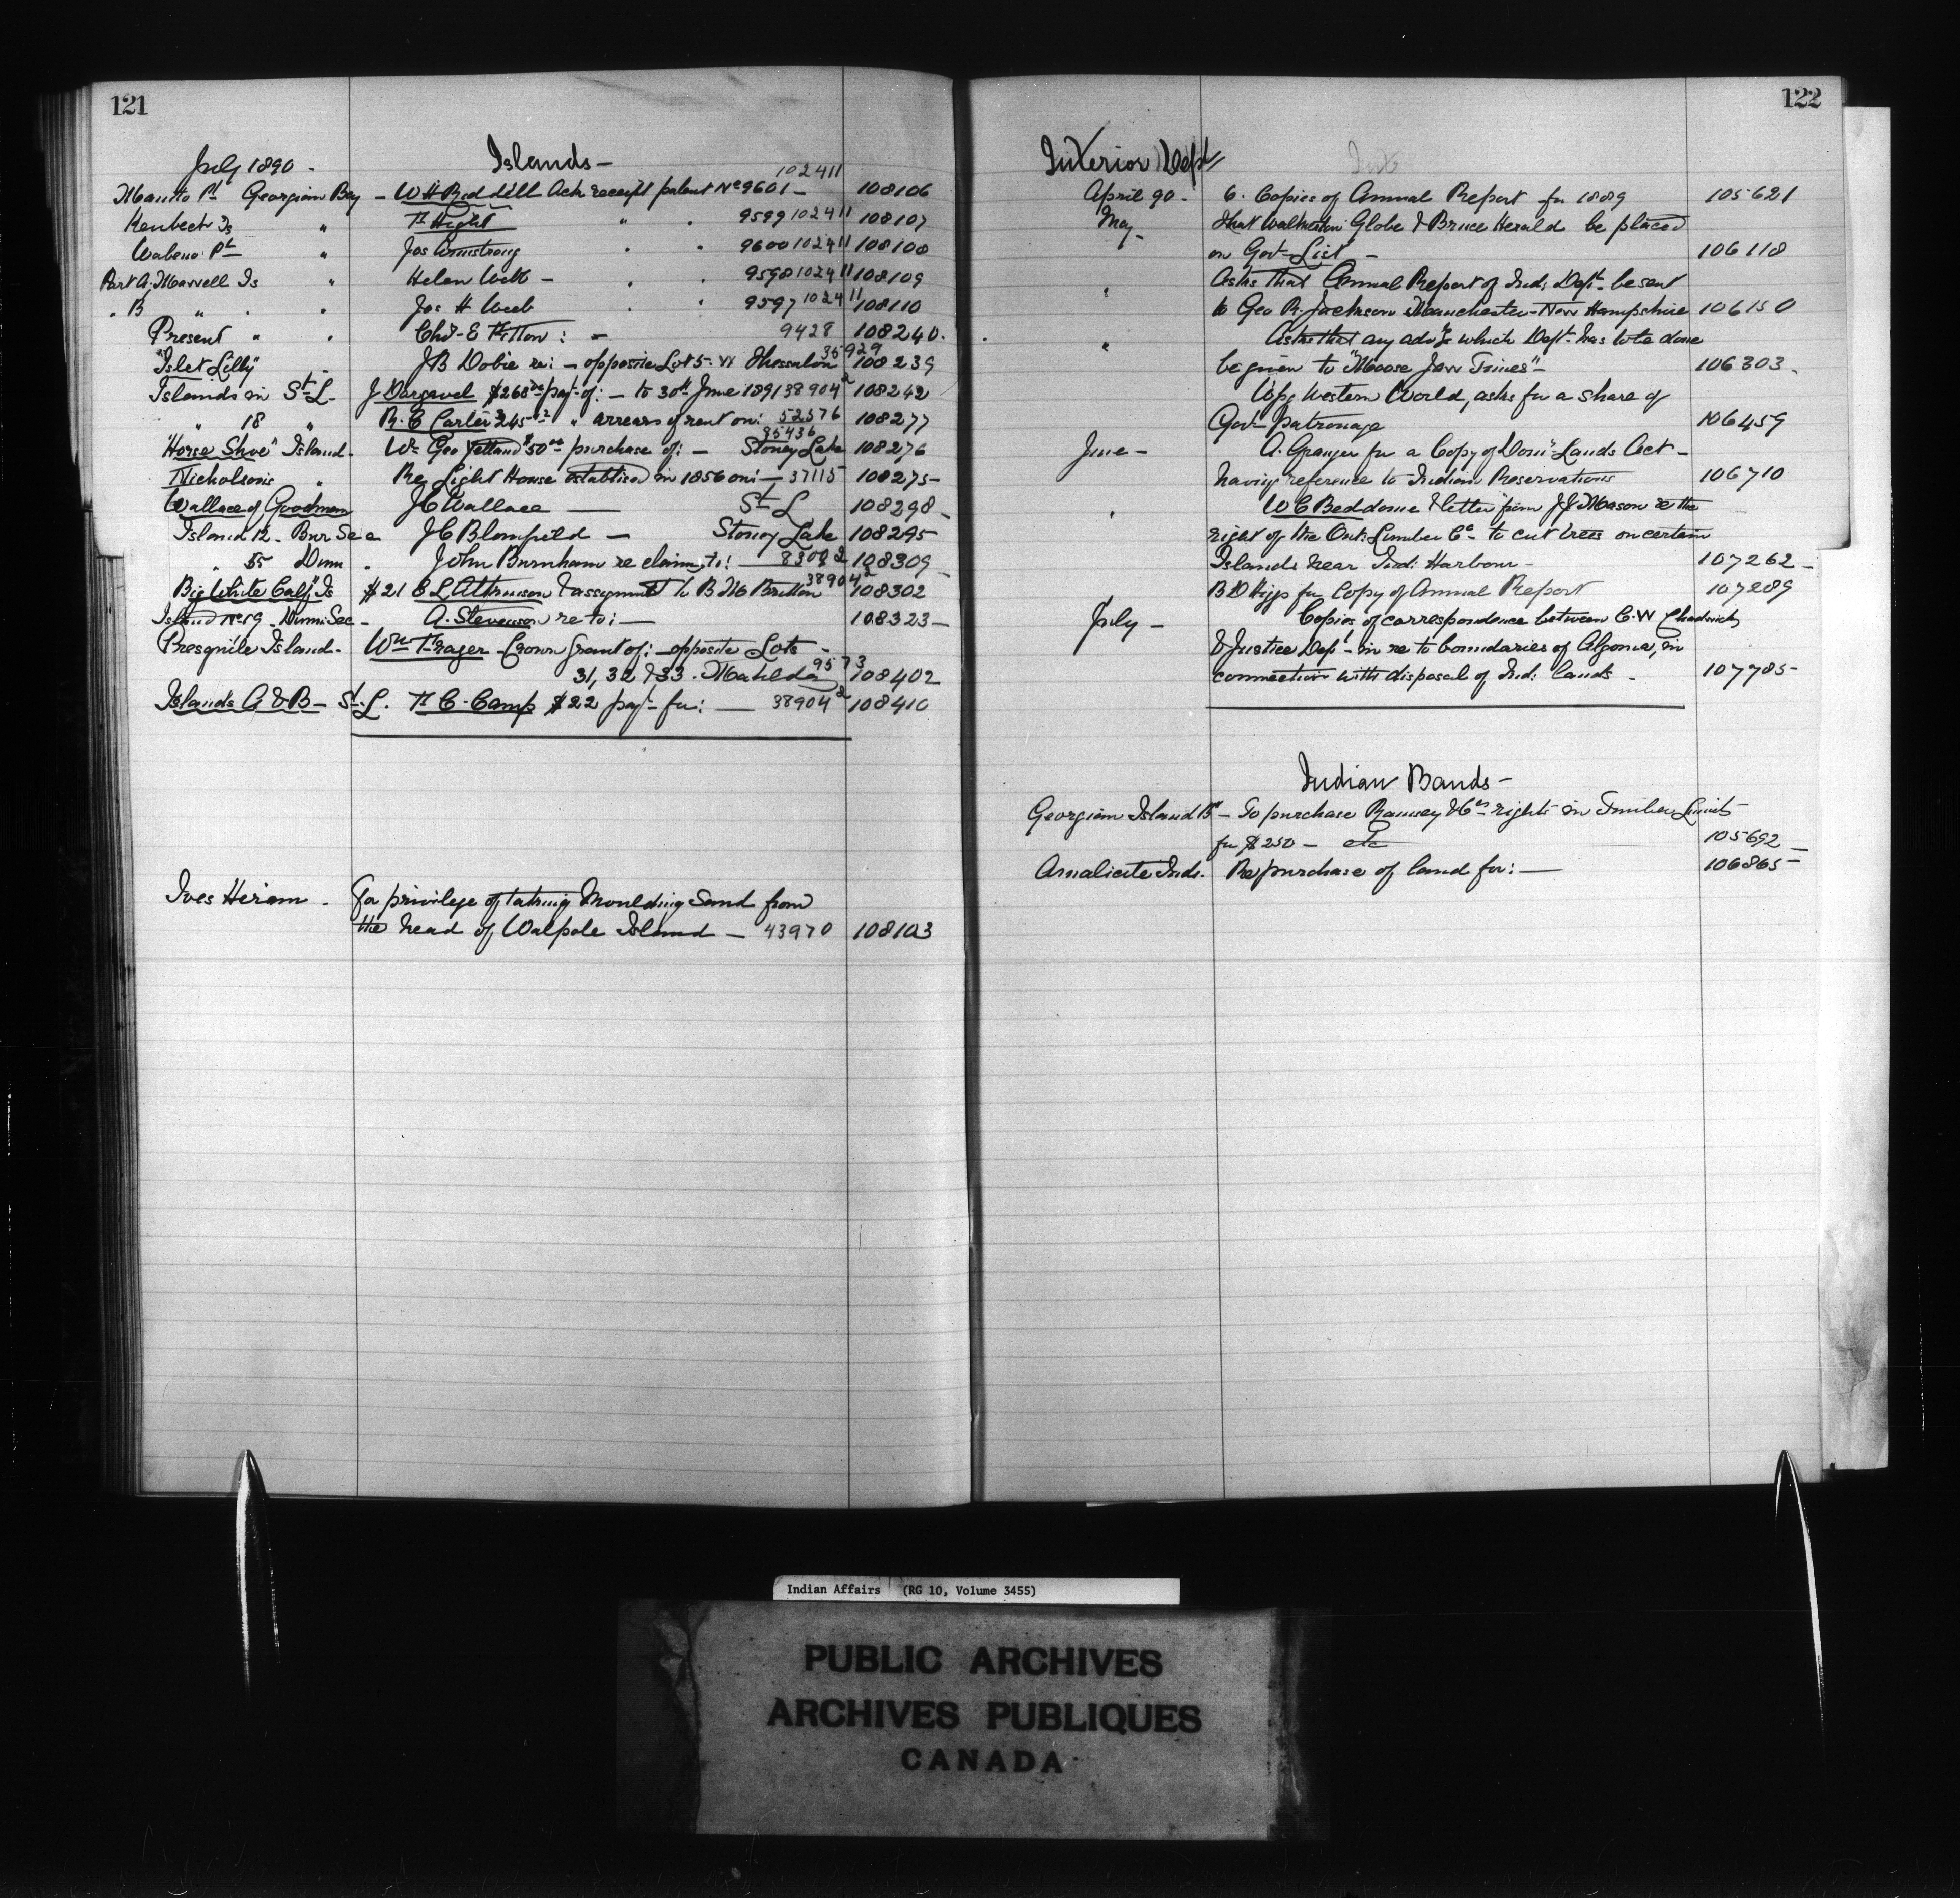 121
July 1890 - Islands -
102411
Manito Pt Georgian Bay - W H Riddell Ack receipt patent No 9601 - 108106
Kenbeck Is " Hight " " 9599 102411 108107
Wabeno Pt " Jos Armstrong . . 9600 102411 108108
Part A. Maxwell Is " Helen Webb - . . 9598 102411 108109
. B " . . Jos H Webb . . 9597 102411 108110
Present " . Chs E Fitton : - 9428 108240.
"Islet Lilly" - J B Dobie re: - opposite Lot 5 - W Thessalon 35929 108239
Islands in St L - J Dargavel $268 payt of: - to 30th June 1891 38904 2 108242
" 18 " R. E Carter $245 " arrears of rent on: 52576 108277
85436
"Horse Shoe" Island - Wm Geo Yelland $50 00 purchase of: - Stoney Lake 108276
Nicholson's " Re Light House establisd in 1856 on: - 37115 108275 -
Wallace of Goodman J C Wallace — St L 108298 -
Island 12 - Bur See J C Blomfield - Stoney Lake 108295
" 55 Dunn . John Burnham re claim to: - 83092 108309 -
"Big White Calf" Is $21 E L Atkinson & assignmt to B M Britton 38904 2 108302
Island No 59 - Dunn Sec - A. Stevenson re to: — 108323 -
Presquile Island - Wm Frager - Crown Grant of: - opposite Lots -
31, 32 & 33. Matilda 9573 108402
Islands A & B - St. L. C. Camp $22 payt for: — 38904 2 108410
Ives Hiram - For privilege of taking Moulding Sand from
the head of Walpole Island - 43970 108103
122
Interior Dept
April 90 - 6. Copies of Annual Report for 1889 105621
May - that Walkerton Globe & Bruce Herald be placed
on Govt List - 106118
" Asks that Annual Report of Ind: Dept be sent
to Geo R. Jackson Manchester - New Hampshire 106150
" Asks that any advg which Dept has to be done
be given to "Moose Jaw Times" - 106303 -
Wpg Western World, asks for a share of
Govt Patronage 106459
June - A. Granger for a Copy of Domn Lands Act -
having reference to Indian Reservations 106710
. W C Beddome & letter from J J Mason re the
right of the Ont: Lumber Co to cut trees on certain
Islands near Ind: Harbour - 107262 -
B D Higgs for Copy of Annual Report 107289
July - Copies of correspondence between C. W Chadwick
& Justice Dept - in re to boundaries of Algoma, in
connection with disposal of Ind: lands - 107785 -
Indian Bands -
Georgian Island Bd - To purchase Ramsey & Co's rights in Timber Limits
for $250 - etc 105692 -
Amalicite Inds. Re purchase of land for: — 106865 -
Indian Affairs (RG 10, Volume 3455)
PUBLIC ARCHIVES
ARCHIVES PUBLIQUES
CANADA